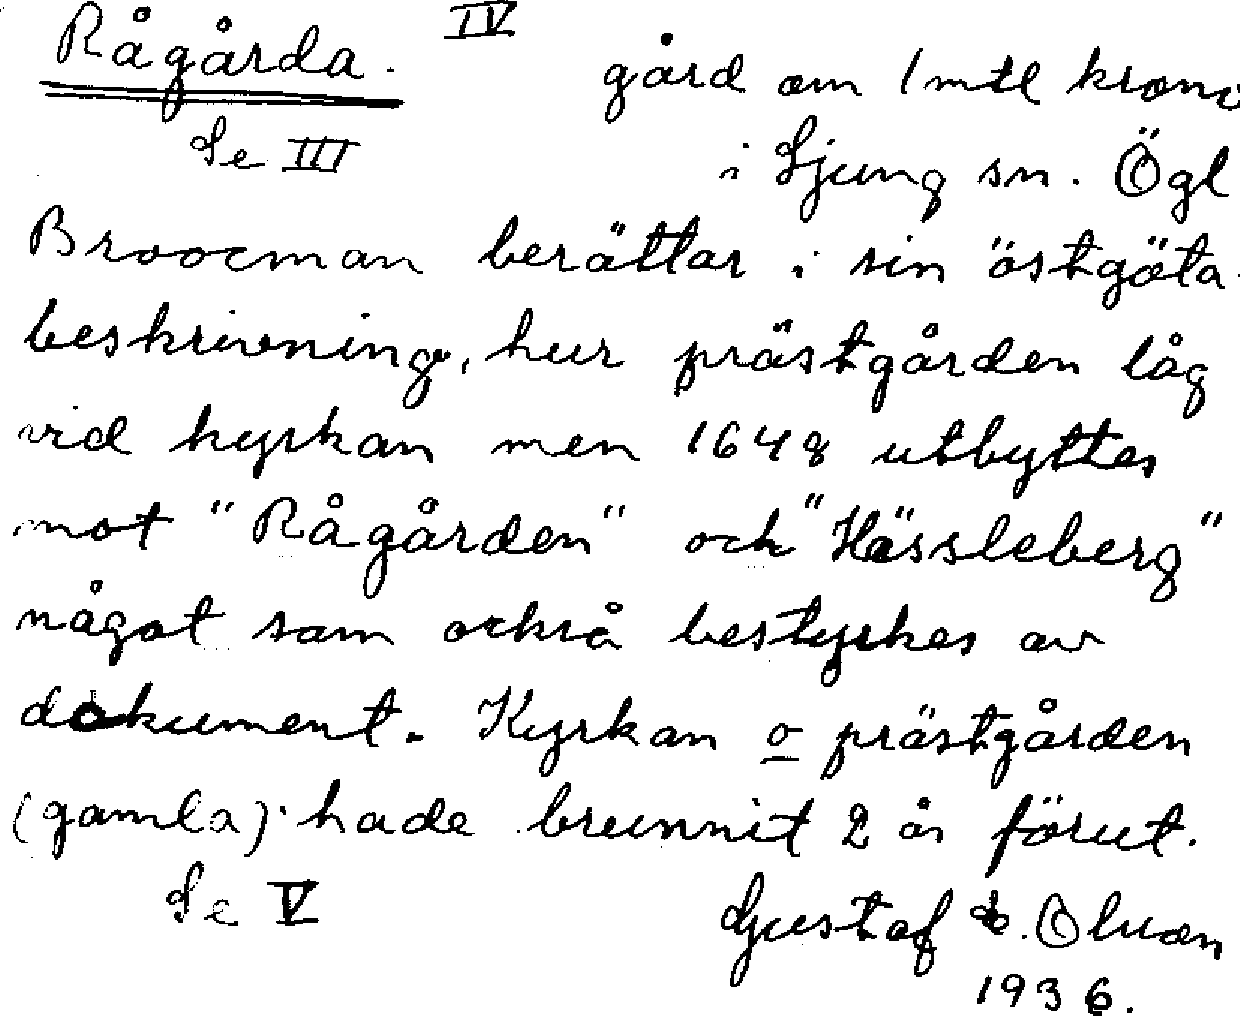 Rågårda. IV
gård om 1 mtl krono
Se III
i Ljung sn. Ögl
Broocman berättar i sin östgöta-
beskrivning, hur prästgården låg
vid kyrkan men 1648 utbyttes
mot "Rågården" och "Hässleberg"
något som också bestyrkes av
dokument. Kyrkan o prästgården
(gamla) hade brunnit 2 år förut.
Se V
Gustaf
1936.